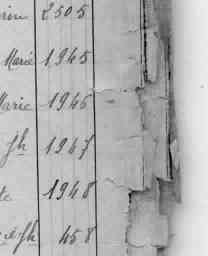 2505
Marie 1945
Marie 1946
1947
te 1948
458